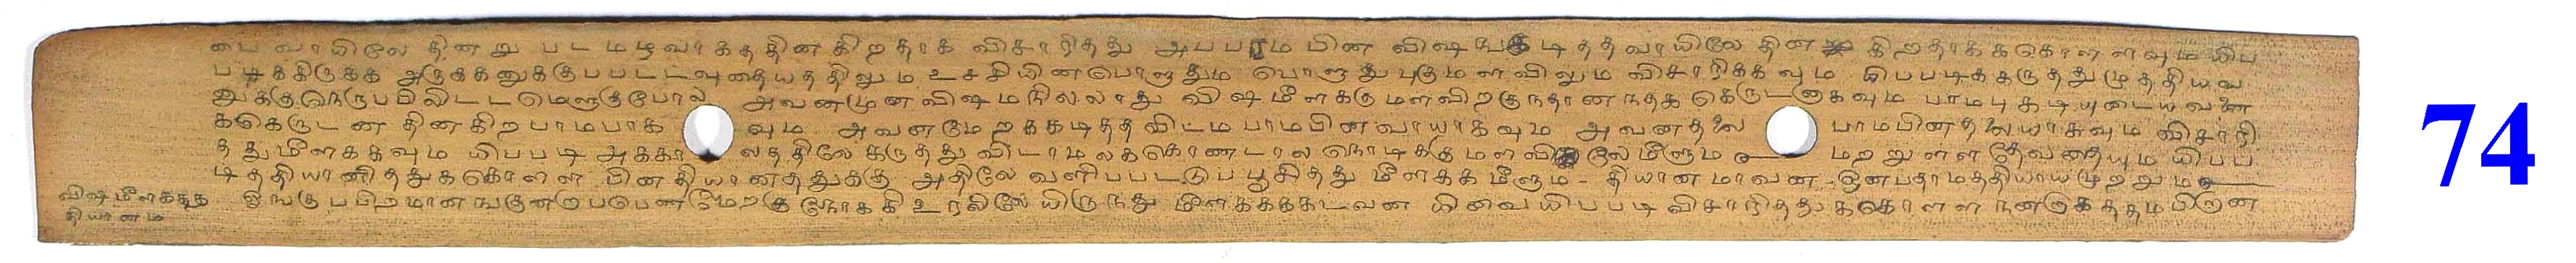 பை வாயிலே தின று பட மழ வாகததின கிறதாக விசாரிதது அபபாம பின விஷஙகடிததவாயிலே தின கிறதாகககொளளவும யிப
படிககிருகக அருககனுககுபபடடவுதையததிலும உசசியினபொளுதும பொளுதுபுகுமளவிலும விசாரிககவும யிபபடிககருததுமுததியவ
னுககுநெருபபிலிடடமெளுகுபோல அவனமுனவிஷமநிலலாது விஷ மீளககுமளவிறகுநதானநதக கெருடனாகவும பாமபுகடியுடையவனை
ககெருடன தினகிறபாமபாக வும அவனமேறககடிததவிடம பாமபினவாயாகவும அவனதலை பாமபினதலையாகவும விசாரி
ததுமீளககவும யிபபடி அககா லததிலேகருதது விடாமலககொணடால நொடிககுமளவிலேமீளும மறறுளள தேவதையும யிபப
டிததியானிததுககொளள பினதியானததுககு அதிலே வளிபபடடுபபூசிதது மீளகக மீளும - தியானமாவன - ஒனபதாமததியாயமுறறும
விஷமீளககத ஓஙகுபபிறமானஙகுனறபபெணமேறகு நோககி உரலிலேயிருநது மீளககககடவன யிவையிபபடி விசாரிததுககொளள நனறாகததமபிரான
தியானம
74